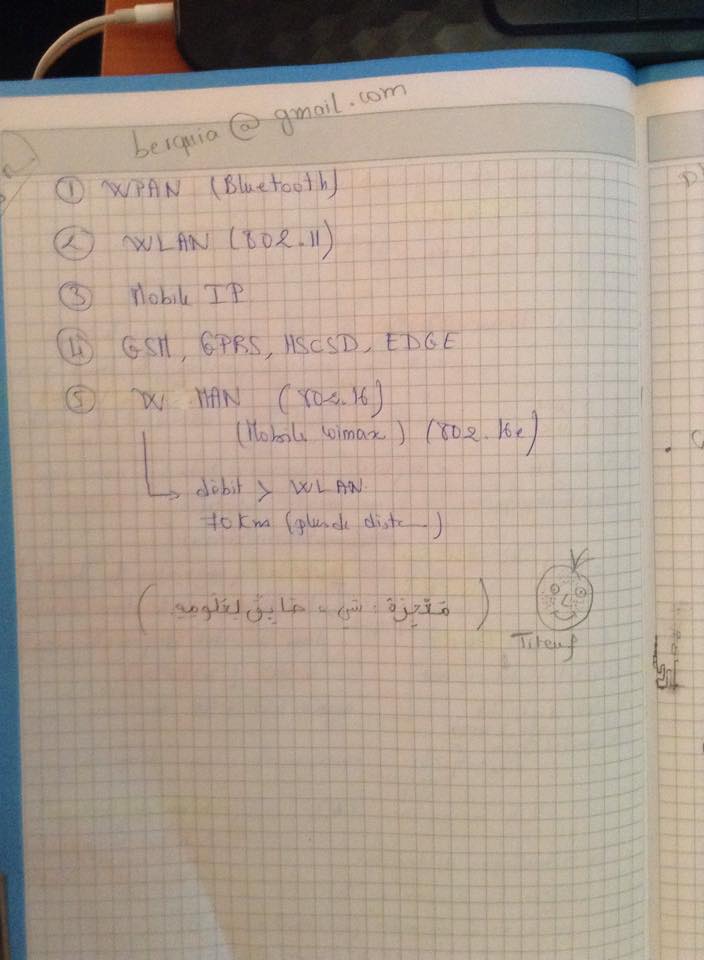 berquia@gmail.com
① WPAN (Bluetooth)
② WLAN (802.11)
③ Mobile IP
④ GSM, GPRS, HSCSD, EDGE
⑤ W MAN (802.16)
(Mobile Wimax) (802.16e)
débit > WLAN
70 Km (plus de dist)
Titeuf